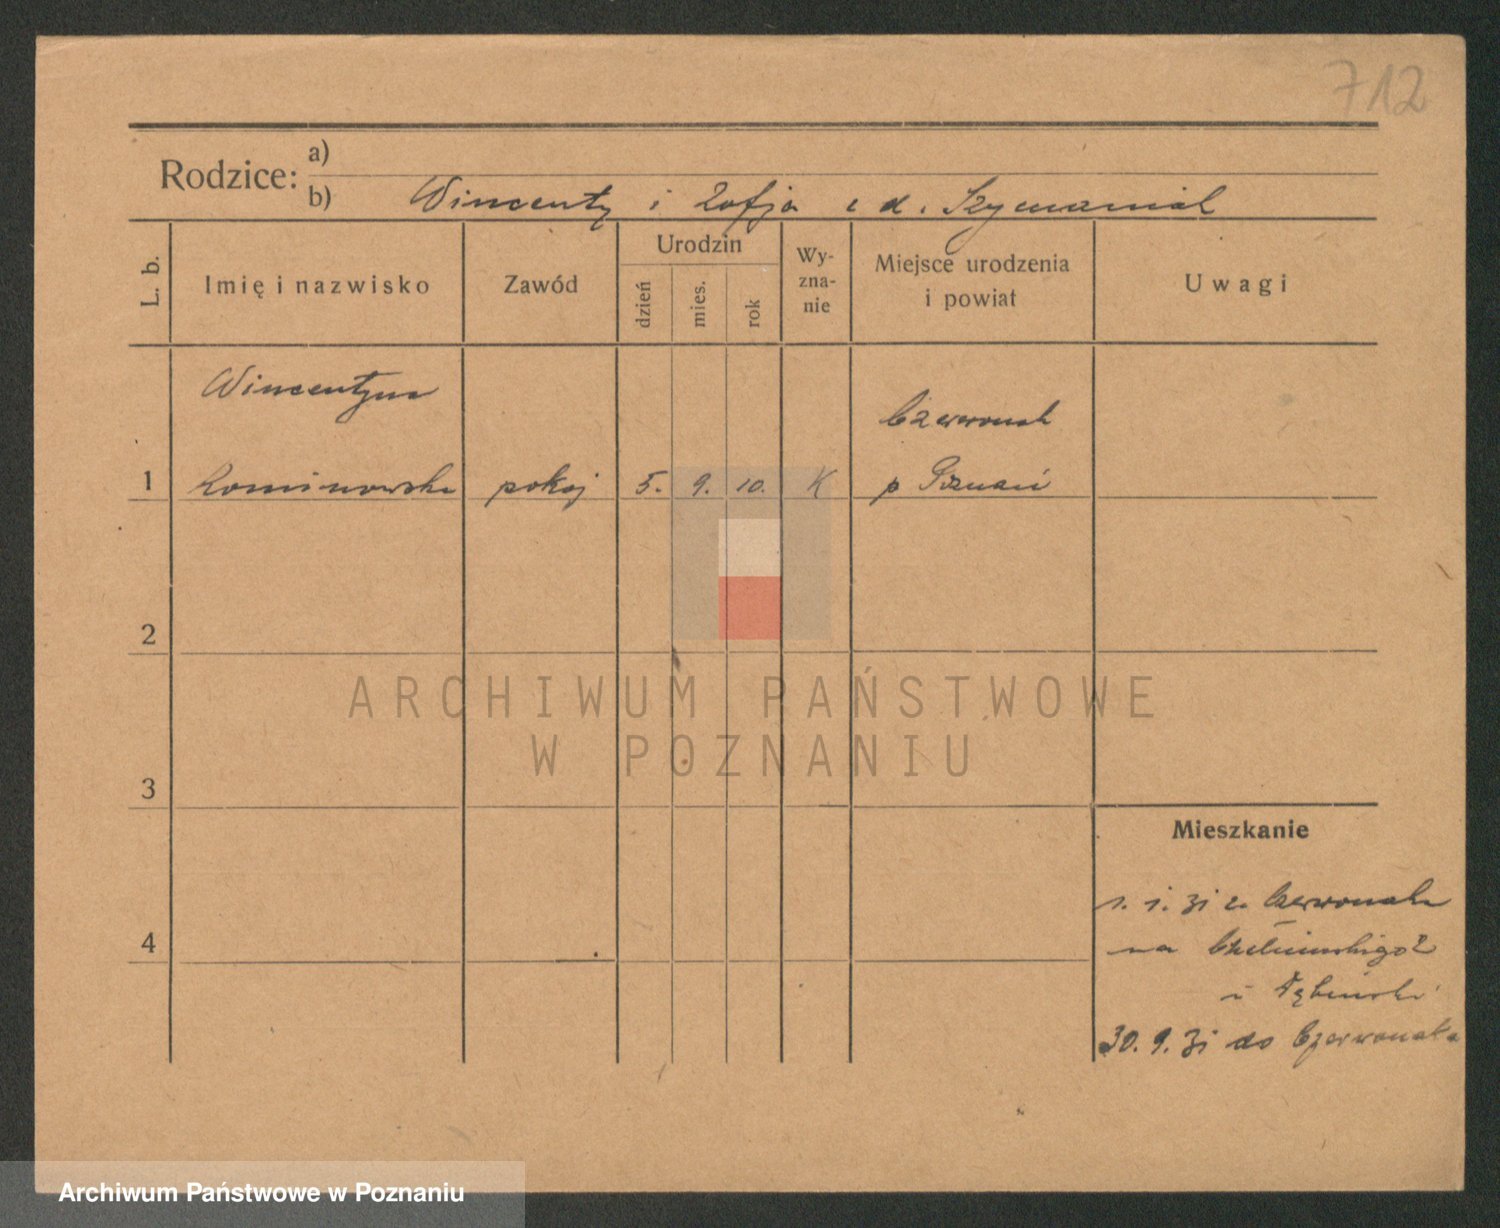 712
Rodzice: a)
b) Wincenty i Zofja z d. Szymaniak
L. b.
Imię i nazwisko
Zawód
Urodzin
dzień
mies.
rok
Wy-
zna-
nie
Miejsce urodzenia
i powiat
Uwagi
Wincentyna
Czerwonak
1 pokoj 5. 9. 10. K p Poznań
2
3
4
Mieszkanie
1. 1. 31 z Czerwonaka
na
u
30. 9. 31 do Czerwonaka
ARCHIWUM PAŃSTWOWE
W POZNANIU
Archiwum Państwowe w Poznaniu